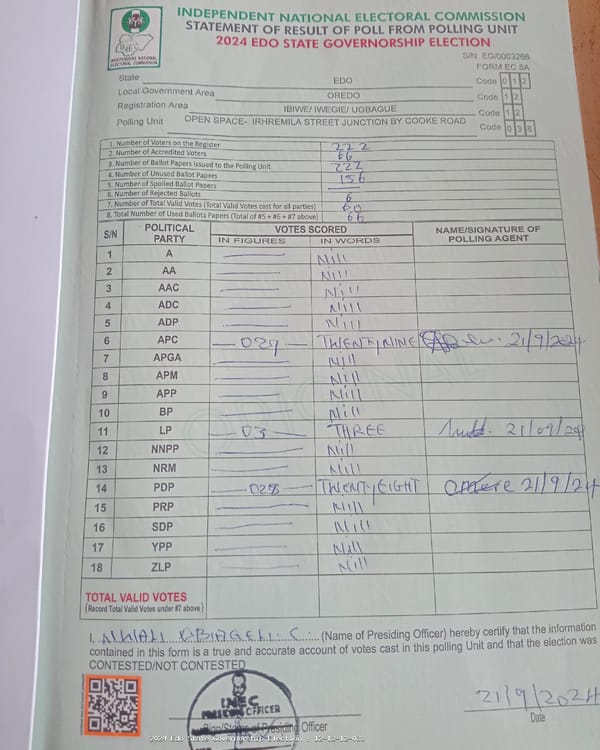 INDEPENDENT NATIONAL ELECTORAL COMMISSION
STATEMENT OF RESULT OF POLL FROM POLLING UNIT
2024 EDO STATE GOVERNORSHIP ELECTION
INEC
INDEPENDENT NATIONAL ELECTORAL COMMISSION
S/N: EG/0003266
FORM EC 8A
State EDO Code 0 1 2
Local Government Area OREDO Code 1 2
Registration Area IBIWE/ IWEGIE/ UGBAGUE Code 1 2
Polling Unit OPEN SPACE- IRHREMILA STREET JUNCTION BY COOKE ROAD Code 0 3 8
1. Number of Voters on the Register 222
2. Number of Accredited Voters 66
3. Number of Ballot Papers Issued to the Polling Unit 222
4. Number of Unused Ballot Papers 156
5. Number of Spoiled Ballot Papers
6. Number of Rejected Ballots 6
7. Number of Total Valid Votes (Total Valid Votes cast for all parties) 60
8. Total Number of Used Ballots Papers (Total of #5 + #6 + #7 above) 66
S/N POLITICAL PARTY VOTES SCORED NAME/SIGNATURE OF POLLING AGENT
IN FIGURES IN WORDS
1 A Nill
2 AA Nill
3 AAC Nill
4 ADC Nill
5 ADP Nill
6 APC 029 TWENTY NINE 21/9/2024
7 APGA Nill
8 APM Nill
9 APP Nill
10 BP Nill
11 LP 03 THREE 21/09/24
12 NNPP Nill
13 NRM Nill
14 PDP 028 TWENTY EIGHT 21/9/24
15 PRP Nill
16 SDP Nill
17 YPP Nill
18 ZLP Nill
TOTAL VALID VOTES
(Record Total Valid Votes under #7 above)
I, OBIAGELI C. (Name of Presiding Officer) hereby certify that the information
contained in this form is a true and accurate account of votes cast in this polling Unit and that the election was
CONTESTED/NOT CONTESTED
INEC
PRESIDING OFFICER
21/9/2024
Officer
Date
2024 Edo State Governorship Election - 12-12-12-038